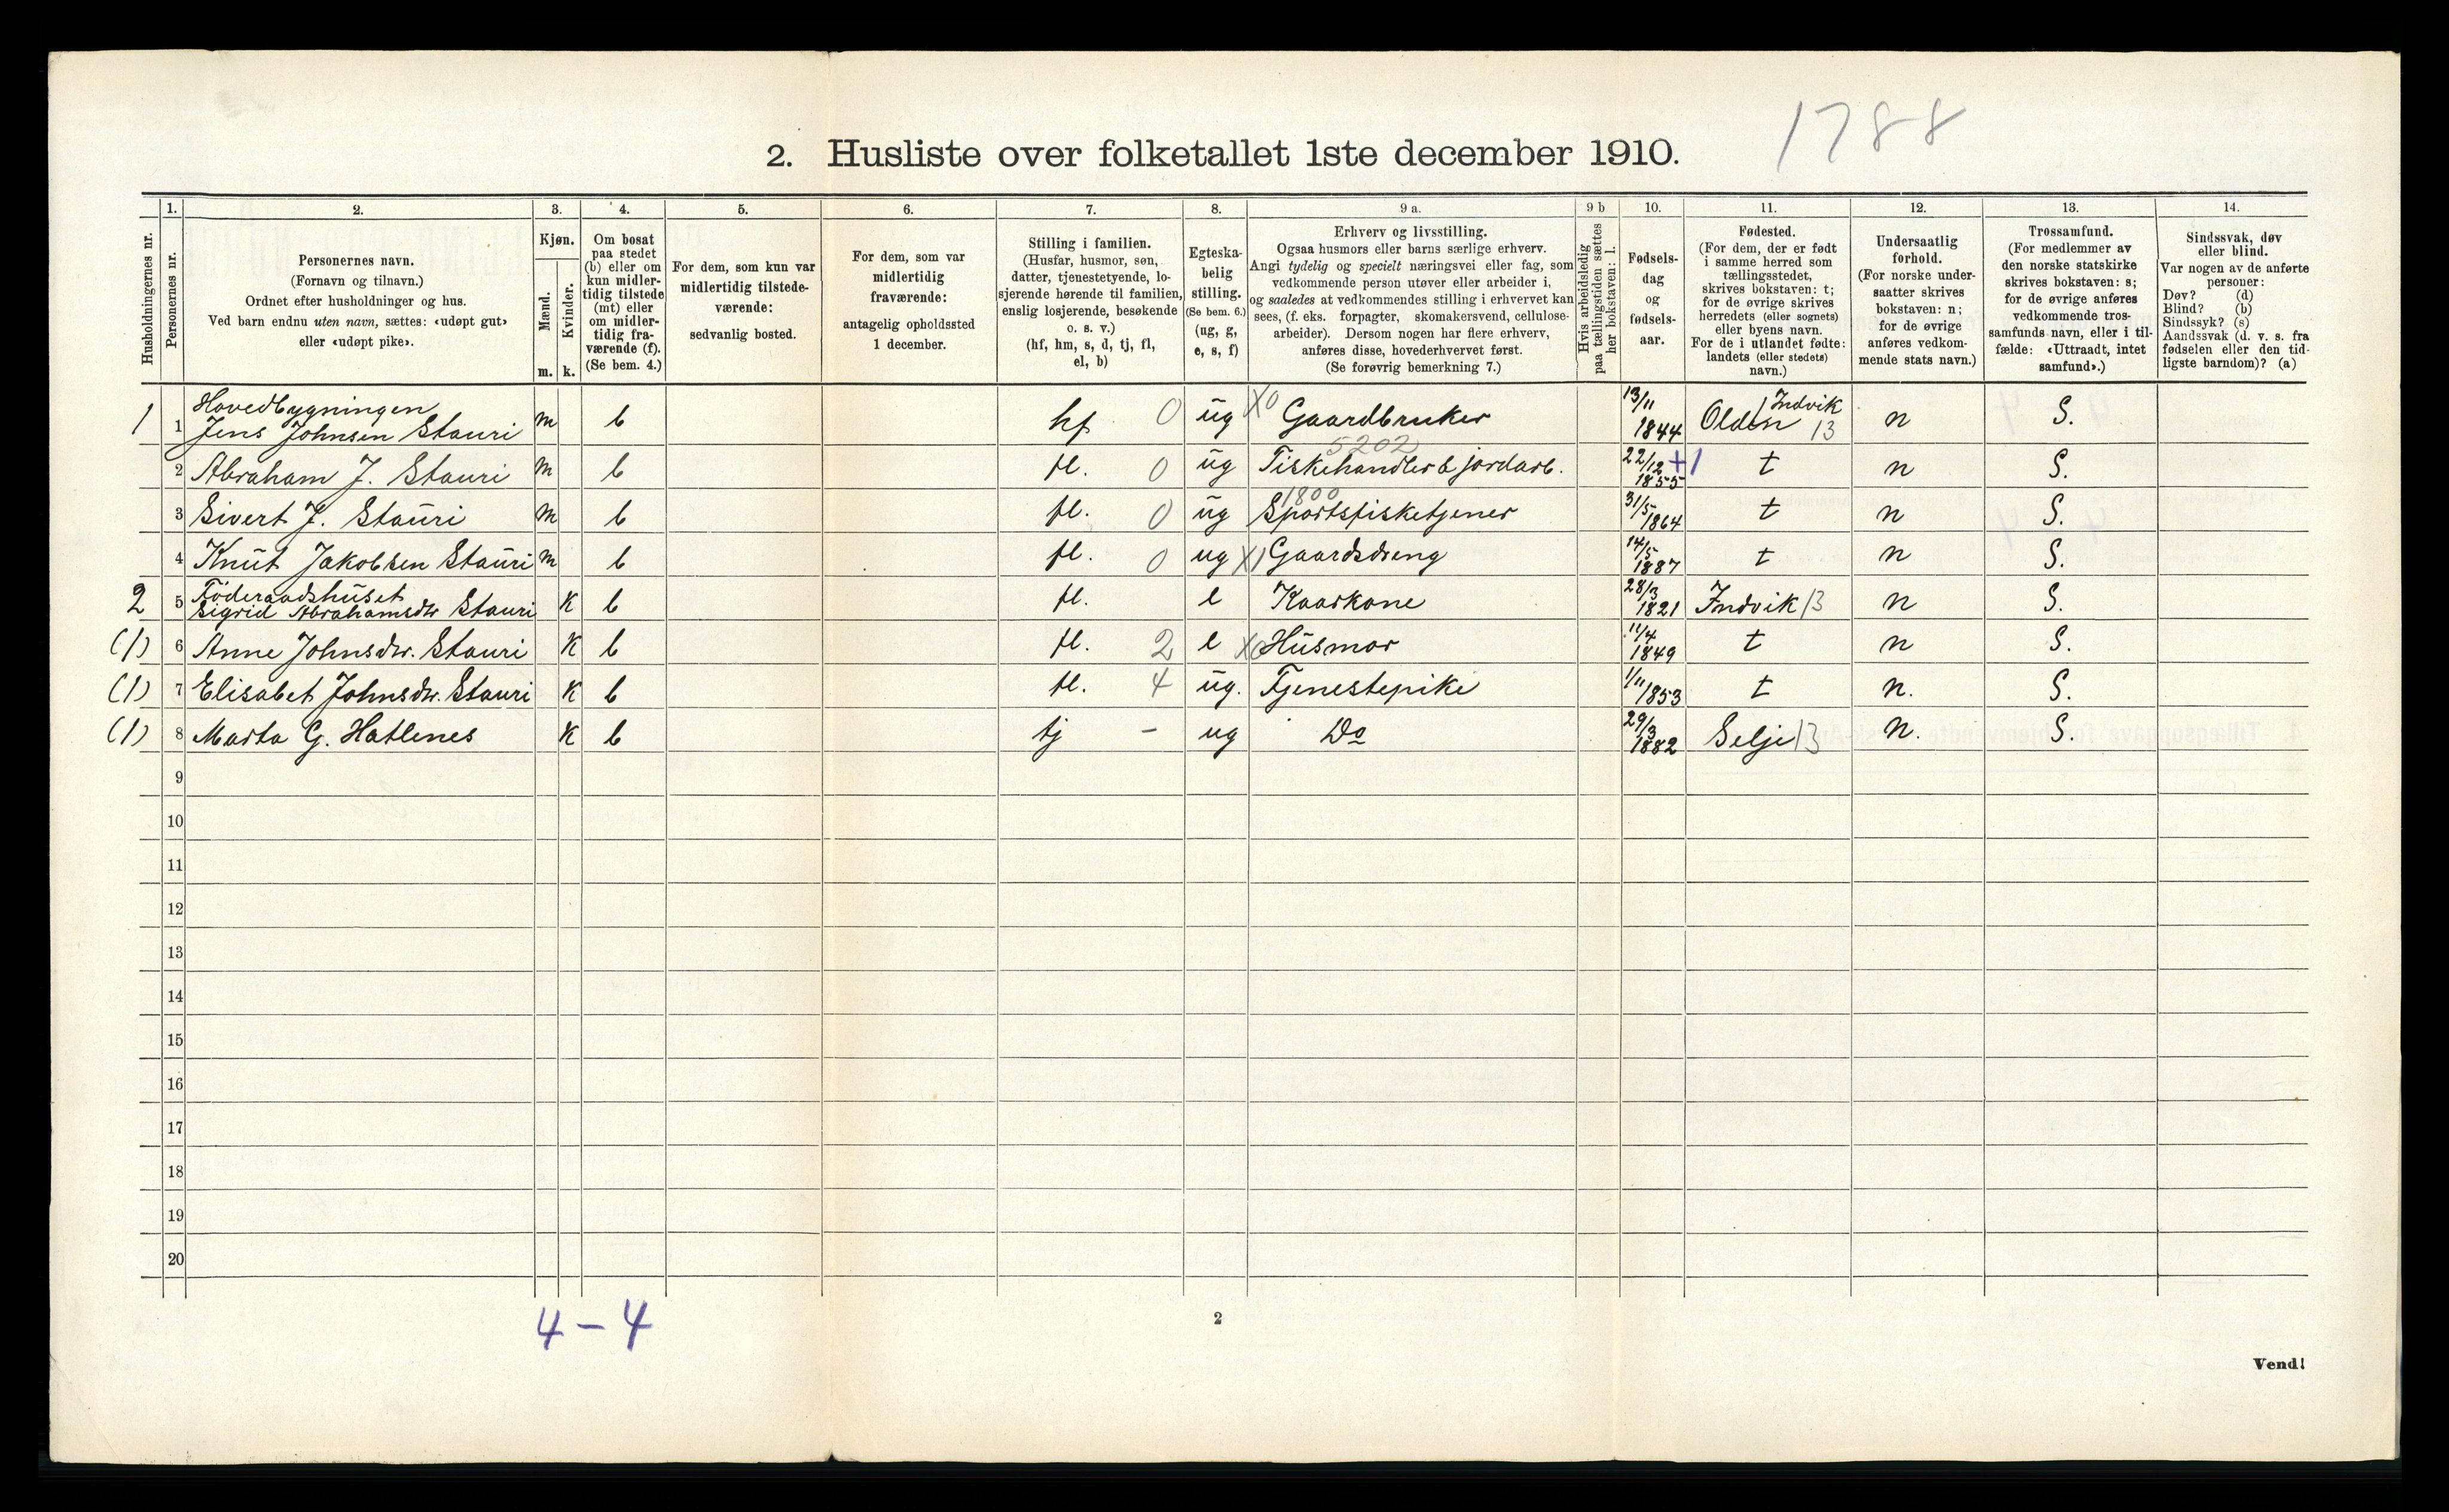 1788
2. Husliste over folketallet 1ste december 1910.
Husholdningernes nr.
1.
Personernes nr.
2.
Personernes navn.
(Fornavn og tilnavn.)
Ordnet efter husholdninger og hus.
Ved barn endnu uten navn, sættes: «udøpt gut»
eller «udøpt pike».
3.
Kjøn.
Mænd.
Kvinder.
m. k.
4.
Om bosat
paa stedet
(b) eller om
kun midler-
tidig tilstede
(mt) eller
om midler-
tidig fra-
værende (f).
(Se bem. 4.)
5.
For dem, som kun var
midlertidig tilstede-
værende:
sedvanlig bosted.
6.
For dem, som var
midlertidig
fraværende:
antagelig opholdssted
1 december.
7.
Stilling i familien.
(Husfar, husmor, søn,
datter, tjenestetyende, lo-
sjerende hørende til familien,
enslig losjerende, besøkende
o. s. v.)
(hf, hm, s, d, tj, fl,
el, b)
8.
Egteska-
belig
stilling.
(Se bem. 6.)
(ug, g,
e, s, f)
9 a.
Erhverv og livsstilling.
Ogsaa husmors eller barns særlige erhverv.
Angi tydelig og specielt næringsvei eller fag, som
vedkommende person utøver eller arbeider i,
og saaledes at vedkommendes stilling i erhvervet kan
sees, (f. eks. forpagter, skomakersvend, cellulose-
arbeider). Dersom nogen har flere erhverv,
anføres disse, hovederhvervet først.
(Se forøvrig bemerkning 7.)
9 b
Hvis arbeidsledig
paa tællingstiden sættes
her bokstaven: l.
10.
Fødsels-
dag
og
fødsels-
aar.
11.
Fødested.
(For dem, der er født
i samme herred som
tællingsstedet,
skrives bokstaven: t;
for de øvrige skrives
herredets (eller sognets)
eller byens navn.
For de i utlandet fødte:
landets (eller stedets)
navn.)
12.
Undersaatlig
forhold.
(For norske under-
saatter skrives
bokstaven: n;
for de øvrige
anføres vedkom-
mende stats navn.)
13.
Trossamfund.
(For medlemmer av
den norske statskirke
skrives bokstaven: s;
for de øvrige anføres
vedkommende tros-
samfunds navn, eller i til-
fælde: «Uttraadt, intet
samfund».)
14.
Sindssvak, døv
eller blind.
Var nogen av de anførte
personer:
Døv? (d)
Blind? (b)
Sindssyk? (s)
Aandssvak (d. v. s. fra
fødselen eller den tid-
ligste barndom)? (a)
Hovedbygningen 13/11 Indvik
1 1 Jens Johnsen Stauri m b hf 0 ug X0 Gaardbruker 1844 Olden 13 n S.
5202
2 Abraham J. Stauri m b fl. 0 ug Fiskehandler & jordarb. 22/12 1855 +1 t n S.
1800
3 Sivert J. Stauri m b fl. 0 ug Sportsfisketjener 31/5 1864 t n S.
4 Knut Jakobsen Stauri m b fl. 0 ug X1 Gaardsdreng 14/5 1887 t n S.
Föderaadshuset
2 5 Sigrid Abrahamsdtr Stauri k b fl. e Kaarkone 28/3 1821 Indvik 13 n S.
(1) 6 Anne Johnsdtr. Stauri k b fl. 2 e X0 Husmor 11/4 1849 t n S.
(1) 7 Elisabet Johnsdtr. Stauri k b fl. 4 ug. Tjenestepike 1/11 1853 t n. S.
(1) 8 Marta G. Hatlenes k b tj - ug Do 29/3 1882 Selje 13 n. S.
9
10
11
12
13
14
15
16
17
18
19
20
4 - 4
2
Vend!